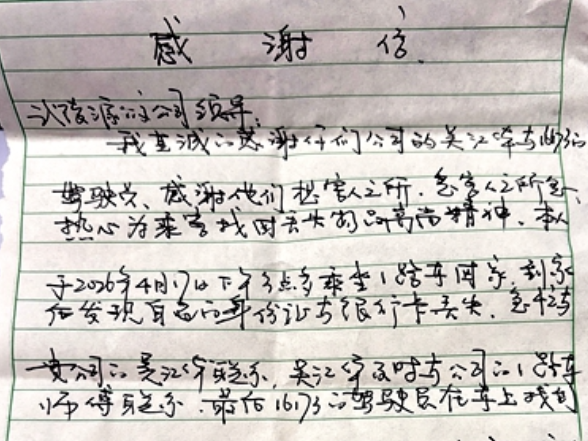 感谢信
武陵源公交公司领导:
我真诚的感谢你们公司的吴江华与16173的
驾驶员、感谢他们想客人之所想、急客人之所急、
热心为乘客找回丢失物品高尚精神。本人
于2026年4月17日下午3点多乘坐1路车回家,到家
后发现自己的身份证与银行卡丢失,急忙与
贵公司的吴江华联系,吴江华及时与公司的1路车
师傅联系 最后16173的驾驶员在车上找到